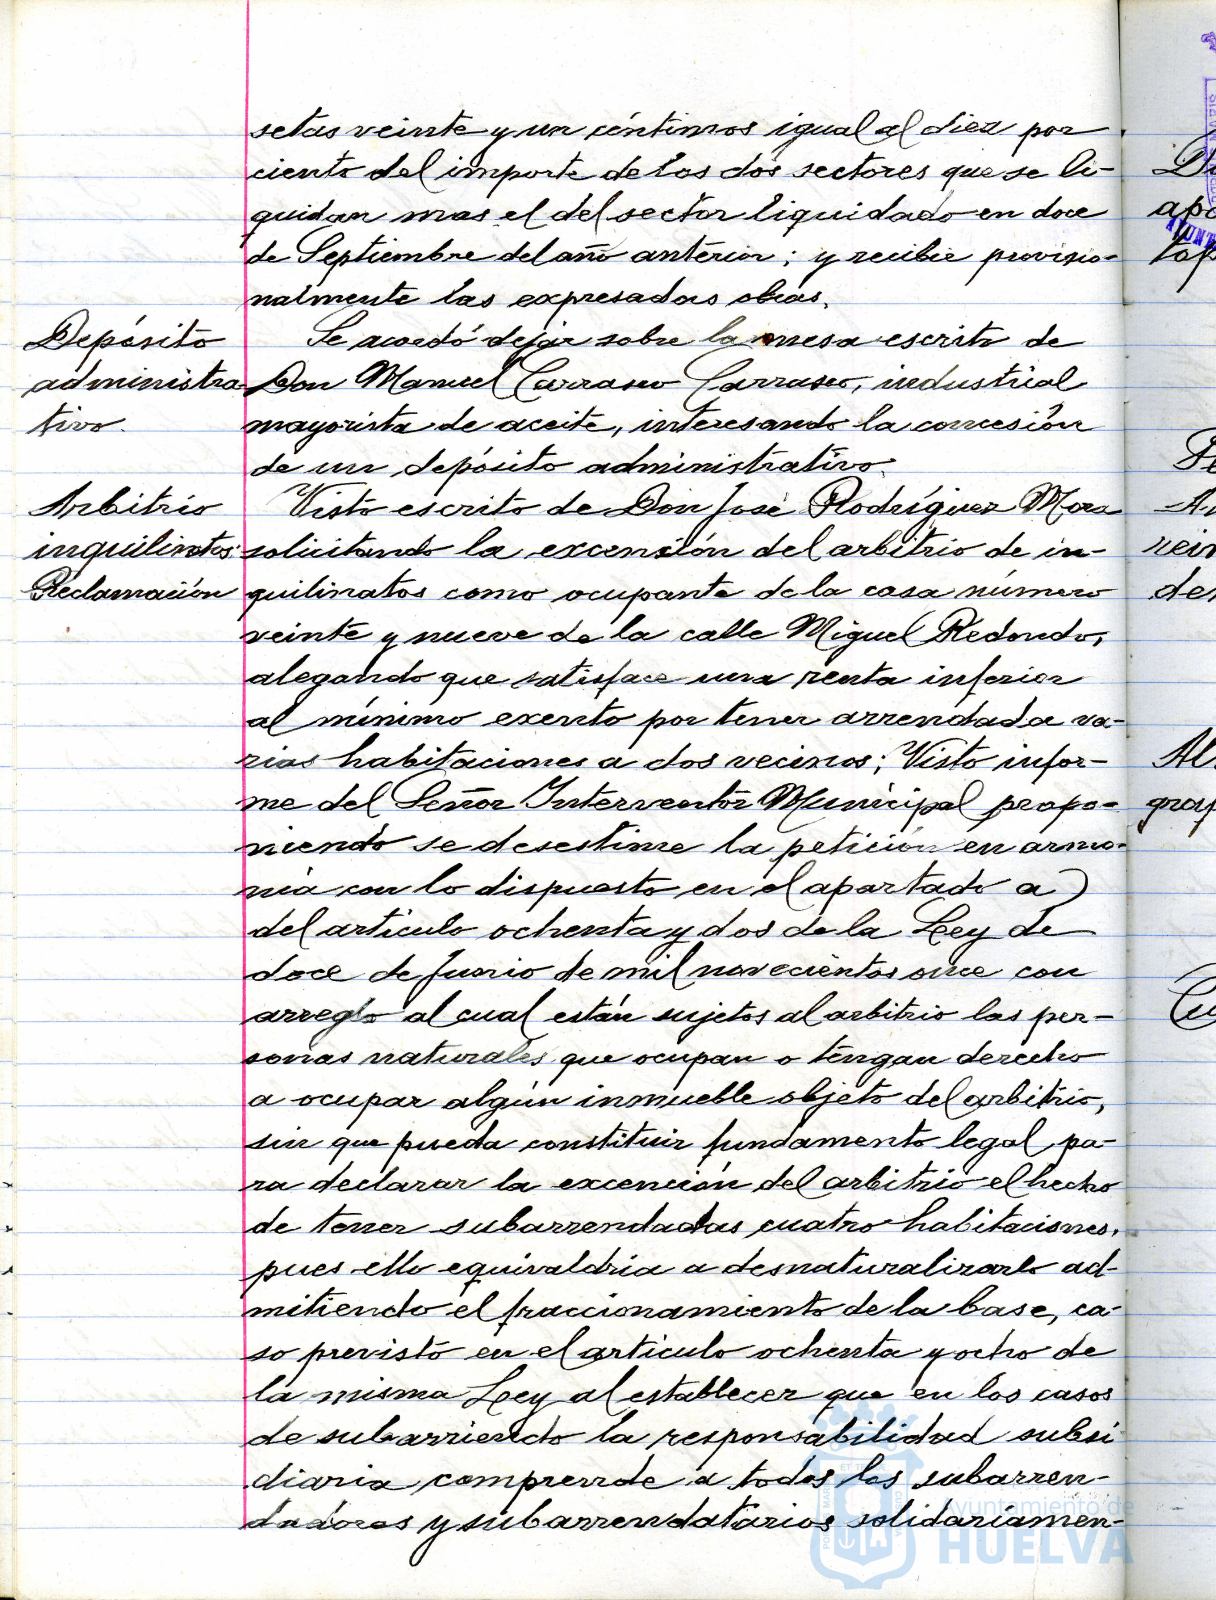 setas veinte y un céntimos igual al diez por
ciento del importe de los dos sectores que se li-
quidan mas el del sector liquidado en doce
de Septiembre del año anterior; y recibir provisio-
nalmente las expresadas obras.
Depósito
administra-
tivo.
Se acordó dejar sobre la mesa escrito de
Don Manuel Carrasco Carrasco, industrial
mayorista de aceite, interesando la concesión
de un depósito administrativo.
Arbitrio
inquilinatos
Reclamación
Visto escrito de Don José Rodríguez Mora
solicitando la excensión del arbitrio de in-
quilinatos como ocupante de la casa número
veinte y nueve de la calle Miguel Redondo,
alegando que satisface una renta inferior
al mínimo exento por tener arrendada va-
rias habitaciones a dos vecinos; Visto infor-
me del Señor Interventor Municipal propo-
niendo se desestime la petición en armo-
nia con lo dispuesto en el apartado a)
del artículo ochenta y dos de la Ley de
doce de Junio de mil novecientos once con
arreglo al cual están sujetos al arbitrio las per-
sonas naturales que ocupan o tengan derecho
a ocupar algún inmueble objeto del arbitrio,
sin que pueda constituir fundamento legal pa-
ra declarar la excención del arbitrio el hecho
de tener subarrendadas cuatro habitaciones,
pues ello equivaldria a desnaturalizarlo ad-
mitiendo el fraccionamiento de la base, ca-
so previsto en el artículo ochenta y ocho de
la misma Ley al establecer que en los casos
de subarriendo la responsabilidad subsi
diaria comprende a todos los subarren-
dadores y subarrendatarios solidariamen-
Ayuntamiento de
HUELVA